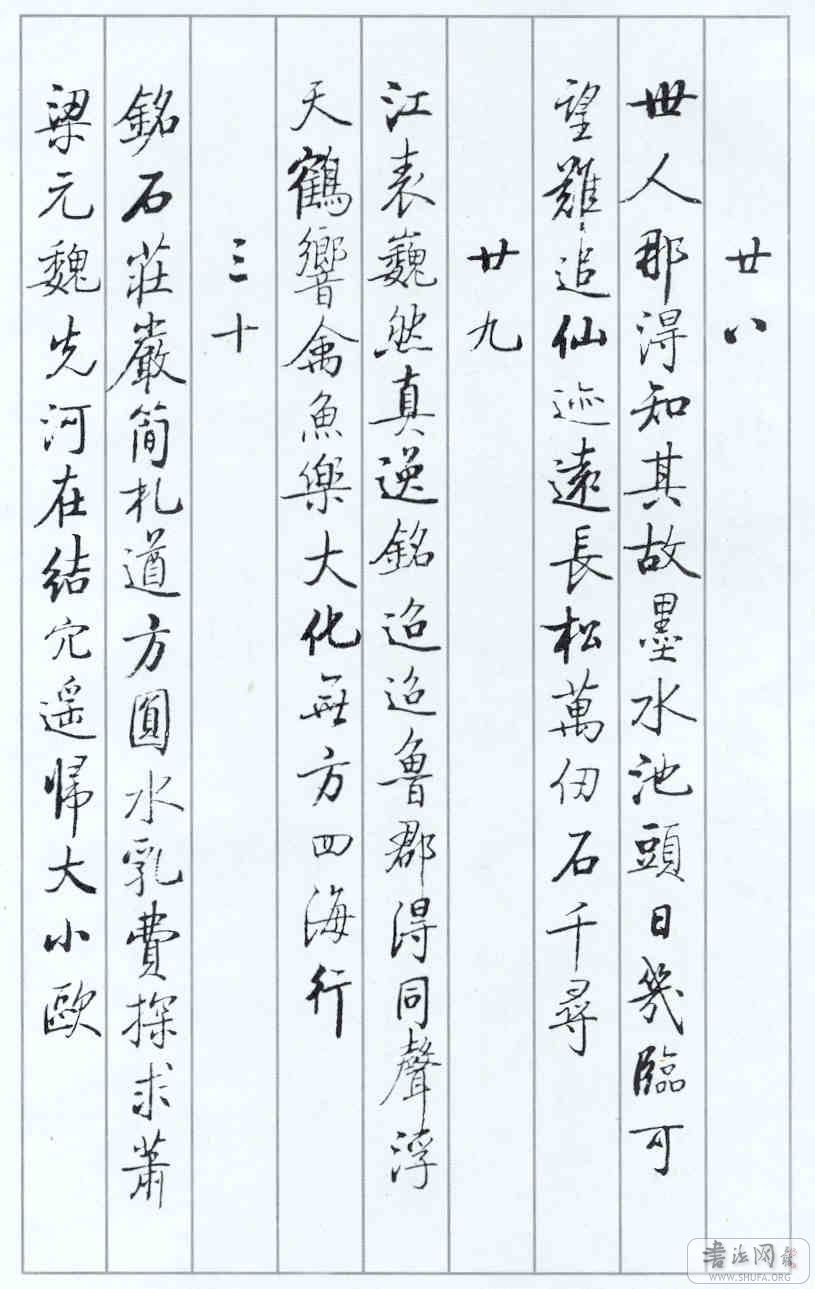 廿八
世人那得知其故墨水池頭日幾臨可
望難追仙迹遠長松萬仞石千尋
廿九
江表巍然真逸銘迢迢魯郡得同聲浮
天鶴響禽魚樂大化無方四海行
三十
銘石莊嚴簡札遒方圓水乳費探求蕭
梁元魏先河在結穴遥歸大小歐
書法网
WWW.SHUFA.ORG